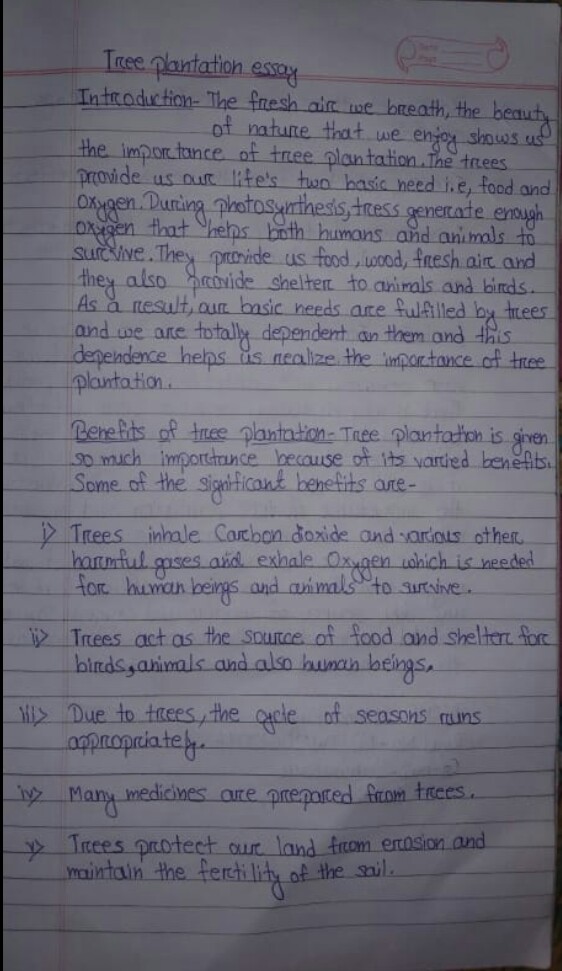 Tree plantation essay
Introduction- The fresh air we breath, the beauty
of nature that we enjoy shows us
the importance of tree plantation. The trees
provide us our life's two basic need i.e, food and
Oxygen. During photosynthesis, tress generate enough
oxygen that helps both humans and animals to
survive. They provide us food, wood, fresh air and
they also provide shelter to animals and birds.
As a result, our basic needs are fulfilled by trees
and we are totally dependent on them and this
dependence helps us realize the importance of tree
plantation.
Benefits of tree plantation- Tree plantation is given
so much importance because of its varied benefits.
Some of the significant benefits are-
i> Trees inhale Carbon dioxide and various other
harmful gases and exhale Oxygen which is needed
for human beings and animals to survive.
ii> Trees act as the source of food and shelter for
birds, animals and also human beings.
iii> Due to trees, the cycle of seasons runs
appropriately.
iv> Many medicines are prepared from trees.
v> Trees protect our land from erosion and
maintain the fertility of the soil.